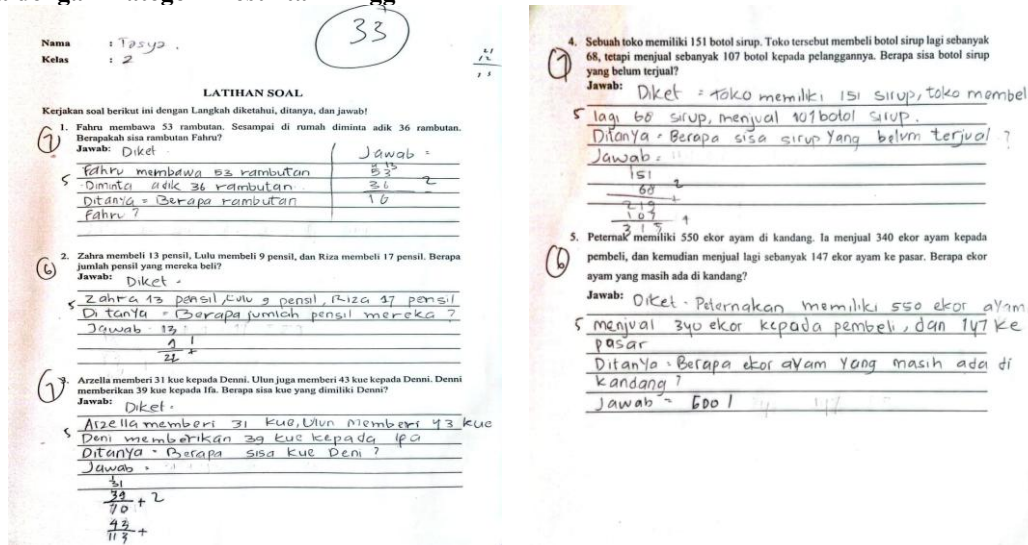 33
Nama : Tasya.
Kelas : 2
LATIHAN SOAL
Kerjakan soal berikut ini dengan Langkah diketahui, ditanya, dan jawab!
7
1. Fahru membawa 53 rambutan. Sesampai di rumah diminta adik 36 rambutan.
Berapakah sisa rambutan Fahru?
Jawab: Diket
Fahru membawa 53 rambutan
5 Diminta adik 36 rambutan
Ditanya = Berapa rambutan
Fahru ?
Jawab =
53
36 2
16
6
2. Zahra membeli 13 pensil, Lulu membeli 9 pensil, dan Riza membeli 17 pensil. Berapa
jumlah pensil yang mereka beli?
Jawab: Diket -
5 Zahra 13 pensil, Lulu 9 pensil, Riza 17 pensil
Ditanya = Berapa jumlah pensil mereka ?
Jawab 13
9 1
22 +
7
3. Arzella memberi 31 kue kepada Denni. Ulun juga memberi 43 kue kepada Denni. Denni
memberikan 39 kue kepada Ifa. Berapa sisa kue yang dimiliki Denni?
Jawab: Diket -
Arzella memberi 31 kue, Ulun memberi 43 kue
5 Deni memberikan 39 kue kepada ipa
Ditanya = Berapa sisa kue Deni ?
Jawab =
31
39 + 2
70
43 +
113
7
4. Sebuah toko memiliki 151 botol sirup. Toko tersebut membeli botol sirup lagi sebanyak
68, tetapi menjual sebanyak 107 botol kepada pelanggannya. Berapa sisa botol sirup
yang belum terjual?
Jawab: Diket = toko memiliki 151 sirup, toko membel
5 lagi 68 sirup, menjual 107 botol sirup.
Ditanya = Berapa sisa sirup yang belum terjual ?
Jawab =
151
68 2
219 +
107 +
315
6
5. Peternak memiliki 550 ekor ayam di kandang. Ia menjual 340 ekor ayam kepada
pembeli, dan kemudian menjual lagi sebanyak 147 ekor ayam ke pasar. Berapa ekor
ayam yang masih ada di kandang?
Jawab: Diket - Peternakan memiliki 550 ekor ayam
5 menjual 340 ekor kepada pembeli, dan 147 ke
pasar
Ditanya = Berapa ekor ayam yang masih ada di
kandang ?
Jawab = 600 1